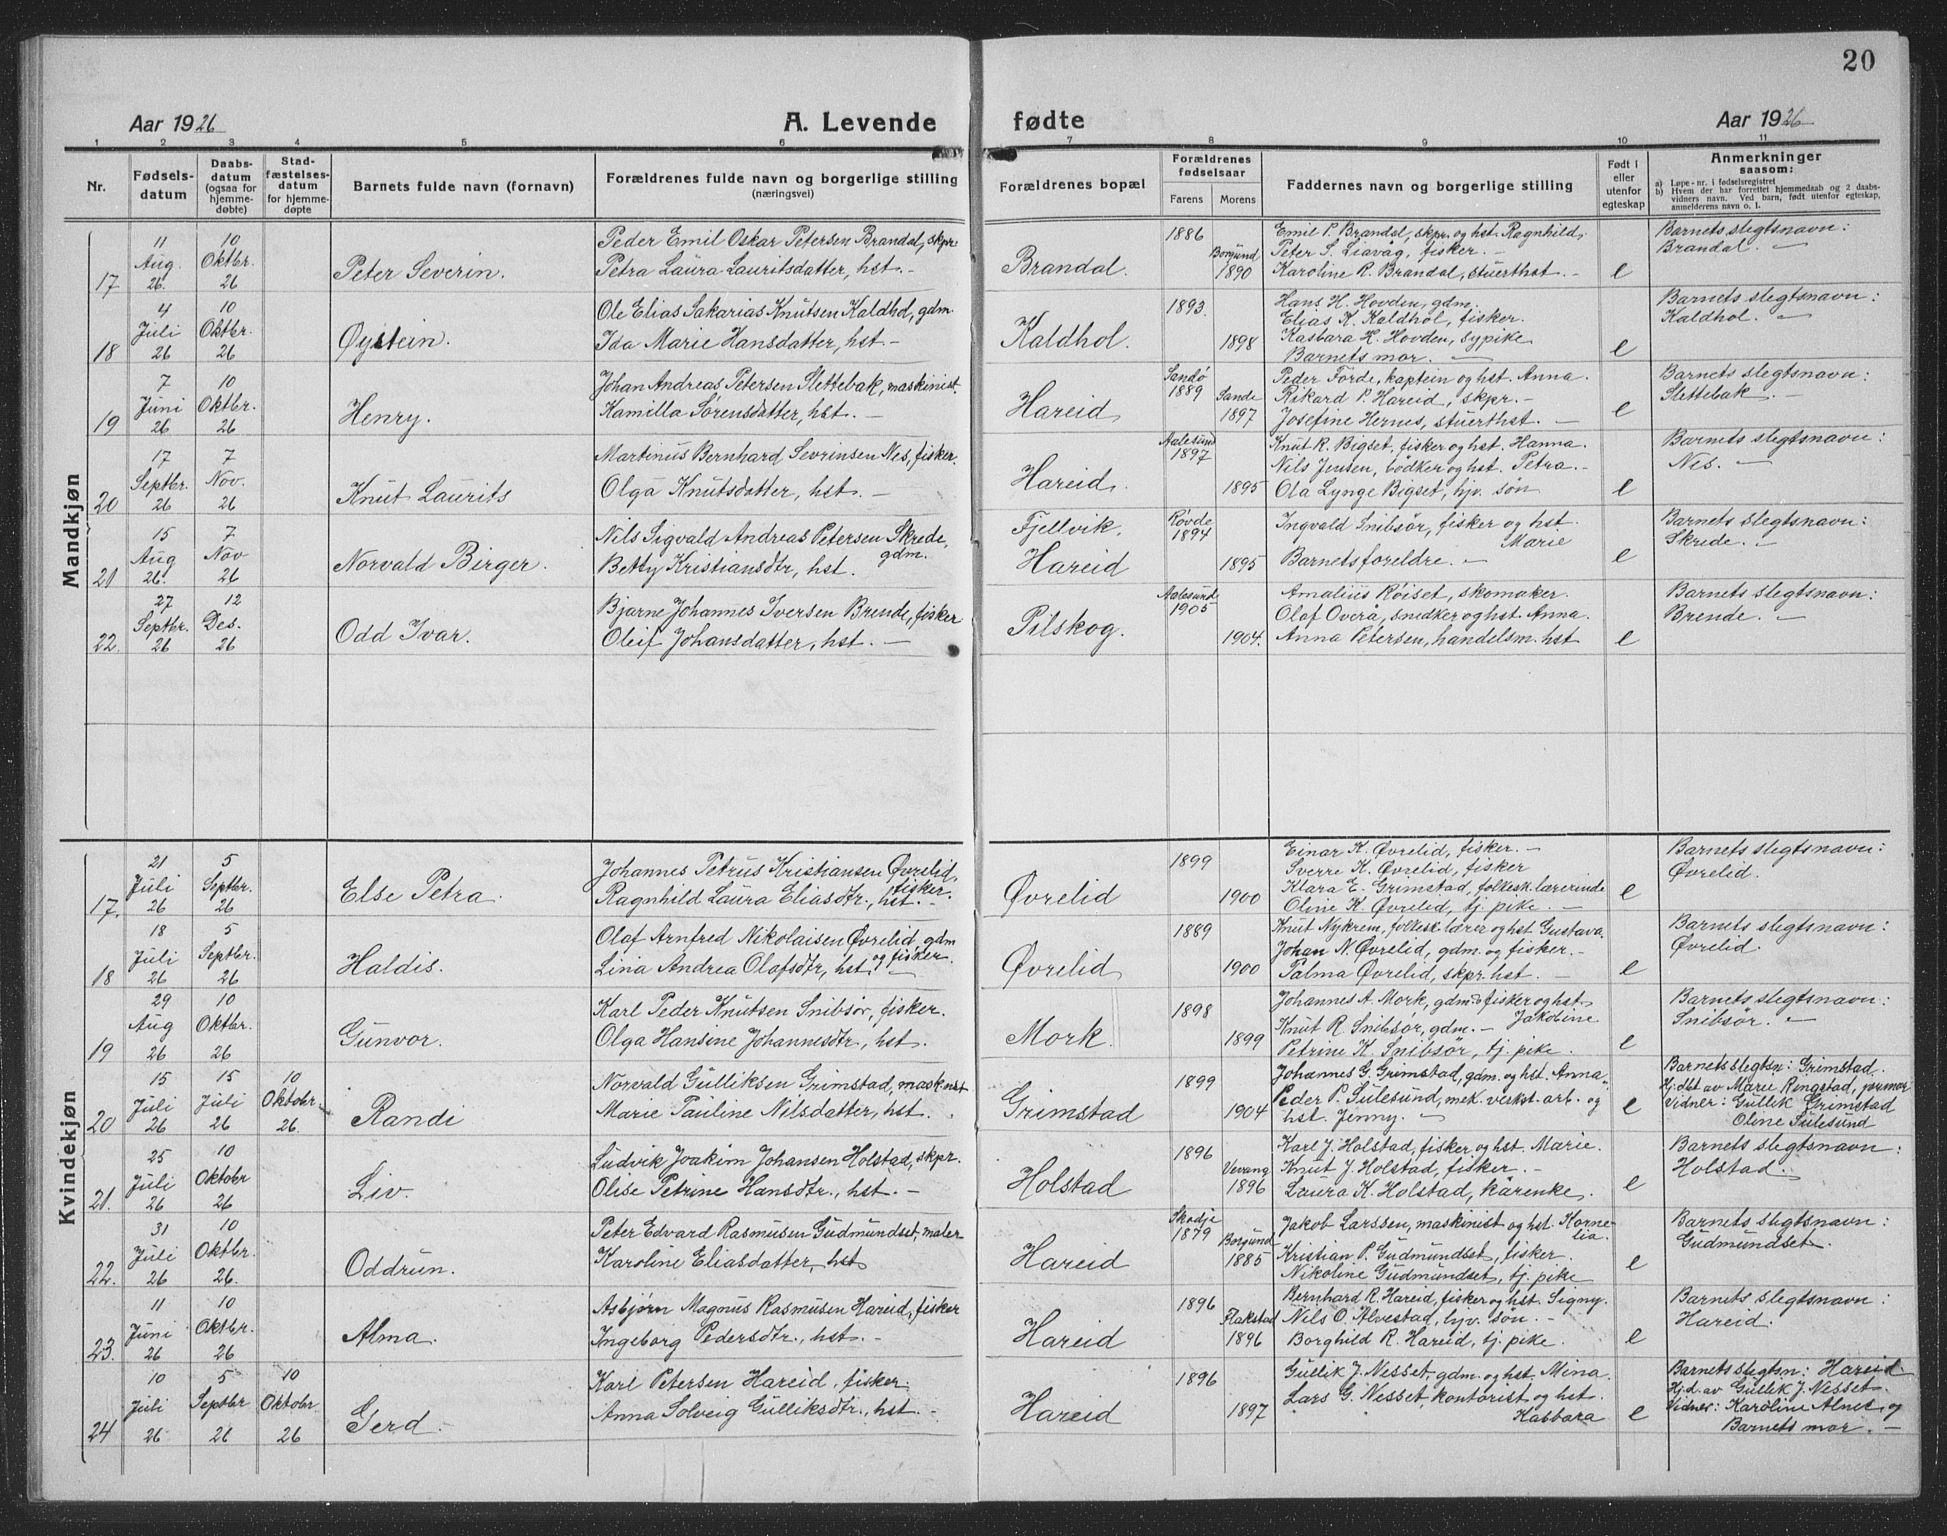 20
Aar 1926 A. Levende fødte Aar 1926
1 2 3 4 5 6 7 8 9 10 11
Nr. Fødsels-datum Daabs-datum (ogsaa for hjemme-døbte) Stad-fæstelses-datum for hjemme-døpte Barnets fulde navn (fornavn) Forældrenes fulde navn og borgerlige stilling (næringsvei) Forældrenes bopæl Forældrenes fødselsaar Farens Morens Faddernes navn og borgerlige stilling Født i eller utenfor egteskap Anmerkninger saasom:
a) Løpe-nr. i fødselsregistret
b) Hvem der har forrettet hjemmedaab og 2 daabs-vidners navn. Ved barn, født utenfor egteskap, anmelderens navn o. l.
Mandkjøn
17 11 Aug. 26. 10 Oktbr. 26 Peter Severin.
Peder Emil Oskar Petersen Brandal, skpr
Petra Laura Lauritsdatter, hst. -
Brandal. 1886 Borgund 1890
Emil P. Brandal, skpr. og hst. Ragnhild.
Peter S. Liavåg, fisker. -
Karoline R. Brandal, stuerthst. -
e
Barnets slegtsnavn:
Brandal. -
18 4 Juli 26 10 Oktbr. 26 Øystein.
Ole Elias Sakarias Knutsen Kaldhol, gdm.
Ida Marie Hansdatter, hst -
Kaldhol. 1893. 1898
Hans H. Hovden, gdm.
Elias K. Kaldhol, fisker.
Kasbara H. Hovden, sypike
Barnets mor. -
e
Barnets slegtsnavn:
Kaldhol. -
19 7 Juni 26 10 Oktbr. 26 Henry.
Johan Andreas Petersen Slettebak, maskinist.
Kamilla Sørensdatter, hst. -
Hareid Sandø 1889 Sande 1897
Peder Förde, kaptein og hst. Anna.
Rikard P. Hareid, skpr. -
Josefine Hernes, stuerthst. -
e
Barnets slegtsnavn:
Slettebak. -
20 17 Septbr. 26 7 Nov. 26 Knut Laurits
Martinus Bernhard Sevrinsen Nes, fisker.
Olga Knutsdatter, hst. -
Hareid. Aalesund 1897 1895
Knut R. Bigset, fisker og hst. Hanna.
Nils Jensen, bödker og hst. Petra. -
Ola Lynge Bigset, hjv. søn
e
Barnets slegtsnavn:
Nes. -
21 15 Aug 26. 7 Nov 26 Norvald Birger.
Nils Sigvald Andreas Petersen Skrede, gdm.
Betty Kristiansdtr, hst.
Fjellvik, Hareid Rovde 1894 1895
Ingvald Snibsör, fisker og hst. Marie
Barnets foreldre. -
e
Barnets slegtsnavn:
Skrede. -
22. 27 Septbr. 26 12 Des. 26 Odd Ivar.
Bjarne Johannes Iversen Brende, fisker
Oleif Johansdatter, hst. -
Pilskog. Aalesund 1905 1904.
Amalius Røiset, skomaker.
Olaf Overå, snedker og hst. Anna.
Anna Petersen, handelsm. hst
e
Barnets slegtsnavn:
Brende. -
Kvindekjøn
17. 21 Juli 26 5 Septbr. 26 Else Petra.
Johannes Petrus Kristiansen Øvrelid, fisker.
Ragnhild Laura Eliasdtr., hst. -
Øvrelid 1899 1900
Einar K. Øvrelid, fisker. -
Sverre K. Øvrelid, fisker
Klara E. Grimstad, folkesk. lærerinde
Oline K. Øvrelid, tj. pike. -
e
Barnets slegtsnavn:
Øvrelid.
18 18 Juli 26 5 Septbr. 26 Haldis.
Olaf Arnfred Nikolaisen Øvrelid, gdm og fisker.
Lina Andrea Olafsdtr, hst. -
Øvrelid 1889 1900
Knut Nykrem, folkesk. lærer og hst Gustava.
Johan N. Øvrelid, gdm. og fisker. -
Palma Øvrelid, skpr. hst. -
e
Barnets slegtsnavn:
Øvrelid.
19 29 Aug 26 10 Oktbr. 26 Gunvor.
Karl Peder Knutsen Snibsør, fisker.
Olga Hansine Johannesdtr, hst.
Mork. 1898 1899
Johannes A. Mork, gdm. & fisker og hst Jakobine
Knut R Snibsör, gdm. -
Petrine K. Snibsör, tj. pike.
e
Barnets slegtsnavn:
Snibsör. -
20 15 Juli 26 15 Juli 26 10 Oktobr. 26. Randi
Norvald Gulliksen Grimstad, maskinst
Marie Pauline Nilsdatter, hst.
Grimstad 1899 1904
Johannes G. Grimstad, gdm. og hst. Anna.
Peder P. Sulesund, mek. verkst. arb. og
hst. Jenny. -
e
Barnets slegtsn: Grimstad.
Hj. dbt av Marie Ringstad, prmor
Vidner: Gullik Grimstad
Oline Sulesund
21. 25 Juli 26 10 Oktobr 26 Liv.
Ludvik Joakim Johansen Holstad, skpr.
Olise Petrine Hansdtr., hst. -
Holstad 1896 Vevang 1896
Karl J. Holstad, fisker og hst. Marie.
Knut J. Holstad, fisker. -
Laura K. Holstad, kårenke.
e
Barnets slegtsnavn:
Holstad.
22. 31 Juli 26 10 Oktbr. 26. Oddrun.
Peter Edvard Rasmusen Gudmundset, maler
Karoline Eliasdatter, hst
Hareid Skodje 1879 Borgund 1885
Jakob Larssen, maskinist og hst. Kornelia.
Kristian P. Gudmundset, fisker.
Nikoline Gudmundset, tj. pike
e
Barnets slegtsnavn:
Gudmundset.
23. 11 Juni 26 10 Oktbr. 26 Alma.
Asbjørn Magnus Rasmusen Hareid, fisker
Ingeborg Pedersdtr., hst. -
Hareid 1896 Flakstad 1896
Bernhard R. Hareid, fisker og hst. Signy.
Nils O. Alvestad, hjv. søn. -
Borghild R. Hareid, tj. pike.
e
Barnets slegtsnavn:
Hareid.
24 10 Juli 26 5 Septbr 26 10 Oktobr. 26 Gerd.
Karl Petersen Hareid, fisker.
Anna Solveig Gulliksdtr., hst. -
Hareid 1896 1897
Gullik J. Nesset, gdm. og hst. Mina.
Lars G. Nesset, kontorist og hst. Kasbara
e
Barnets slegtsn: Hareid
Hj.d. av Gullik J. Nesset.
Vidner: Karoline Alnes og
Barnets mor. -